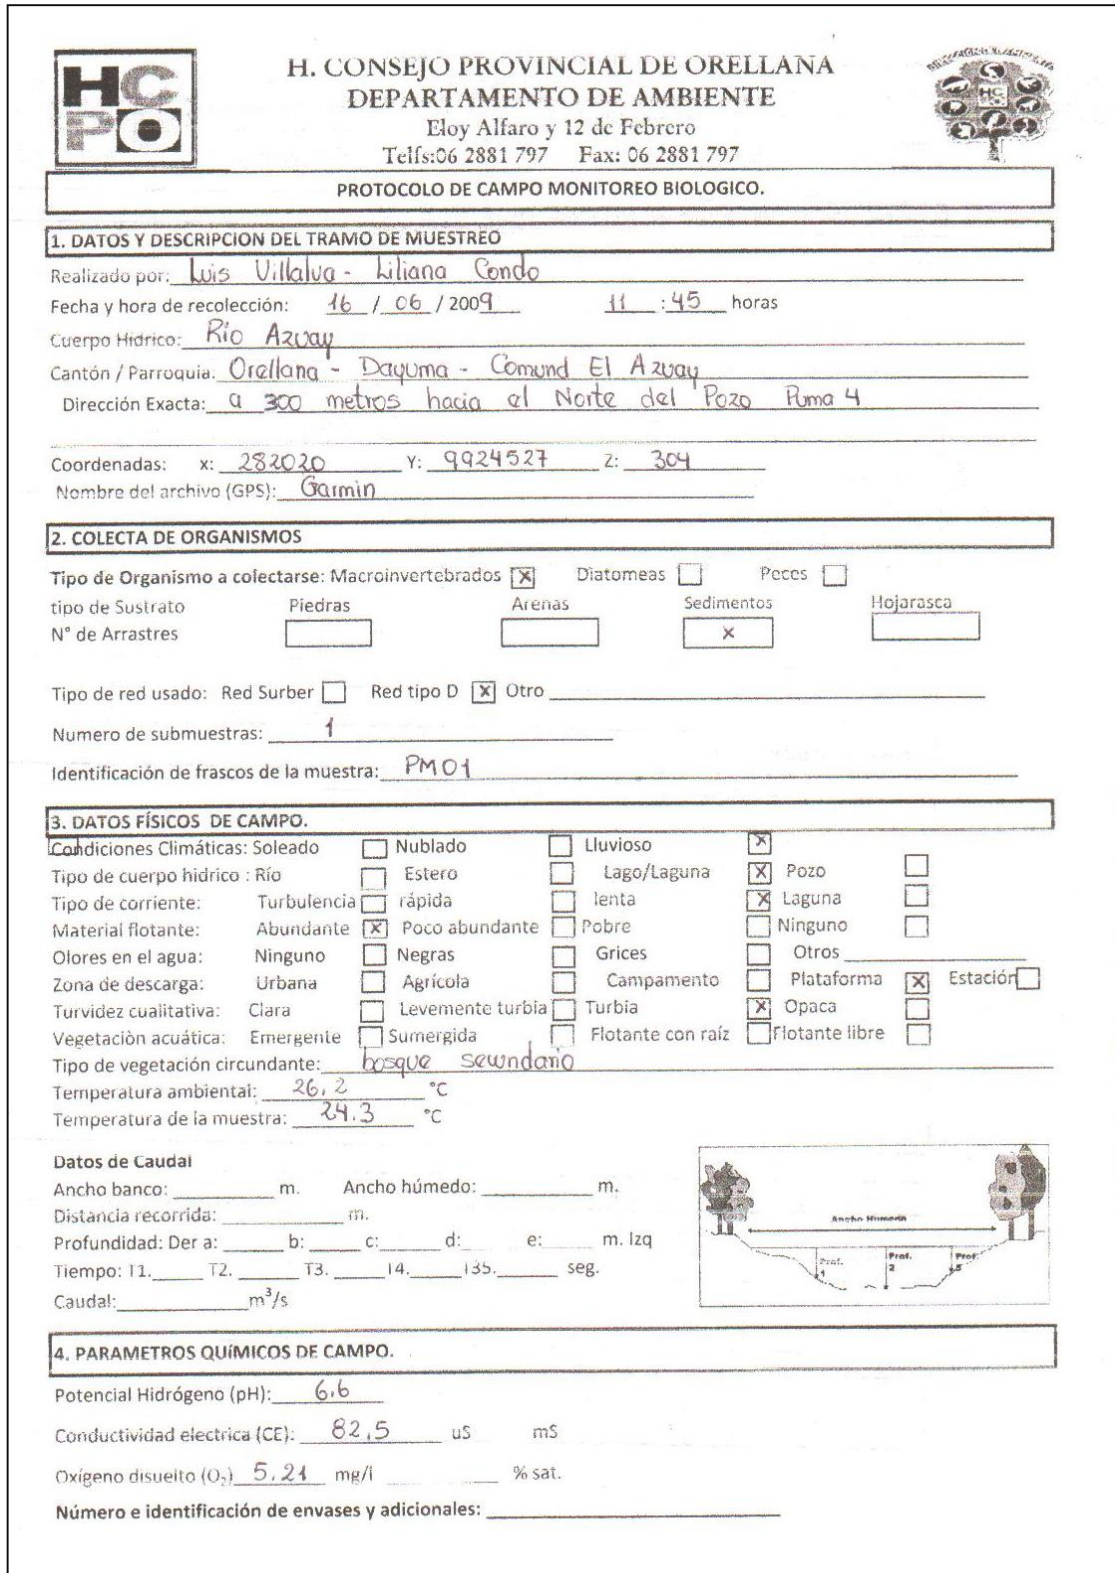 HCPO
H. CONSEJO PROVINCIAL DE ORELLANA
DEPARTAMENTO DE AMBIENTE
Eloy Alfaro y 12 de Febrero
Telfs:06 2881 797 Fax: 06 2881 797
HC PO
PROTOCOLO DE CAMPO MONITOREO BIOLOGICO.
1. DATOS Y DESCRIPCION DEL TRAMO DE MUESTREO
Realizado por: Luis Villalva - Liliana Condo
Fecha y hora de recolección: 16 / 06 / 2009 11 : 45 horas
Cuerpo Hídrico: Río Azuay
Cantón / Parroquia: Orellana - Dayuma - Comund El Azuay
Dirección Exacta: a 300 metros hacia el Norte del Pozo Puma 4
Coordenadas: x: 282020 Y: 9924527 Z: 304
Nombre del archivo (GPS): Garmin
2. COLECTA DE ORGANISMOS
Tipo de Organismo a colectarse: Macroinvertebrados [x] Diatomeas [ ] Peces [ ]
tipo de Sustrato Piedras Arenas Sedimentos Hojarasca
N° de Arrastres [ ] [ ] [x] [ ]
Tipo de red usado: Red Surber [ ] Red tipo D [x] Otro
Numero de submuestras: 1
Identificación de frascos de la muestra: PM01
3. DATOS FÍSICOS DE CAMPO.
Condiciones Climáticas: Soleado [ ] Nublado [ ] Lluvioso [x]
Tipo de cuerpo hidrico : Río [ ] Estero [ ] Lago/Laguna [x] Pozo [ ]
Tipo de corriente: Turbulencia [ ] rápida [ ] lenta [x] Laguna [ ]
Material flotante: Abundante [x] Poco abundante [ ] Pobre [ ] Ninguno [ ]
Olores en el agua: Ninguno [ ] Negras [ ] Grices [ ] Otros
Zona de descarga: Urbana [ ] Agrícola [ ] Campamento [ ] Plataforma [x] Estación [ ]
Turvidez cualitativa: Clara [ ] Levemente turbia [ ] Turbia [x] Opaca [ ]
Vegetaciòn acuática: Emergente [ ] Sumergida [ ] Flotante con raíz [ ] Flotante libre [ ]
Tipo de vegetación circundante: bosque secundario
Temperatura ambiental: 26,2 °C
Temperatura de la muestra: 24.3 °C
Datos de Caudal
Ancho banco: m. Ancho húmedo: m.
Distancia recorrida: m.
Profundidad: Der a: b: c: d: e: m. Izq
Tiempo: T1. T2. T3. T4. T35. seg.
Caudal: m³/s
Ancho Humedo
Prof. 1
Prof. 2
Prof. 3
4. PARAMETROS QUíMICOS DE CAMPO.
Potencial Hidrógeno (pH): 6,6
Conductividad electrica (CE): 82,5 uS mS
Oxígeno disuelto (O₂) 5.21 mg/l % sat.
Número e identificación de envases y adicionales: